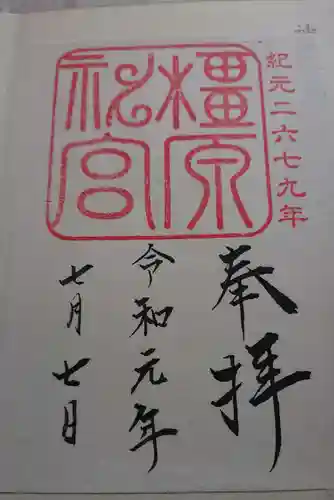 紀元二六七九年
橿原
神宮
奉拝
令和元年
七月七日